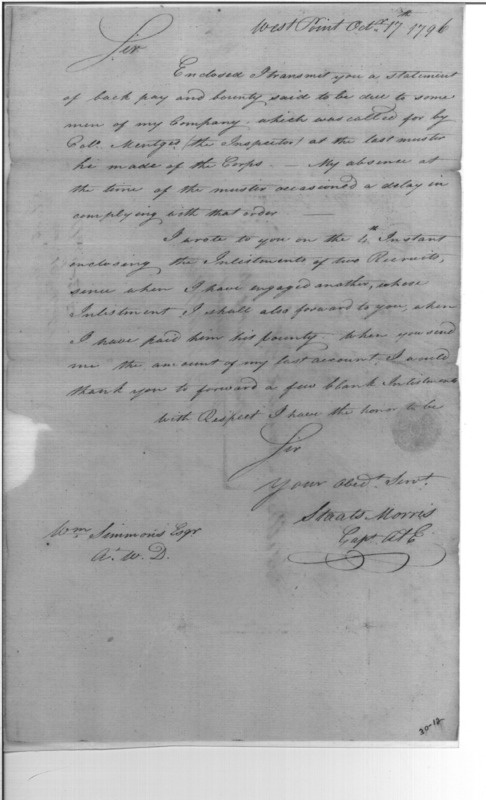 West Point Octr. 17th 1796
Sir
Enclosed I transmit you a statement
of back pay and bounty said to be due to some
men of my Company. which was called for by
Colo. Mentges (the Inspector) at the last muster
he made of the Corps — My absence at
the time of the muster occasioned a delay in
complying with that order —
I wrote to you on the 4th Instant
enclosing the Inlistments of two Recruits,
since when I have engaged another, whose
Inlistment, I shall also forward to you, when
I have paid him his bounty. When you send
me the amount of my last account, I will
thank you to forward a few blank Inlistments
with Respect I have the honor to be
Sir
Your Obedt. Servt.
Staats Morris
Capt A&E
Wm Simmons Esqr
At. W. D.
20-12